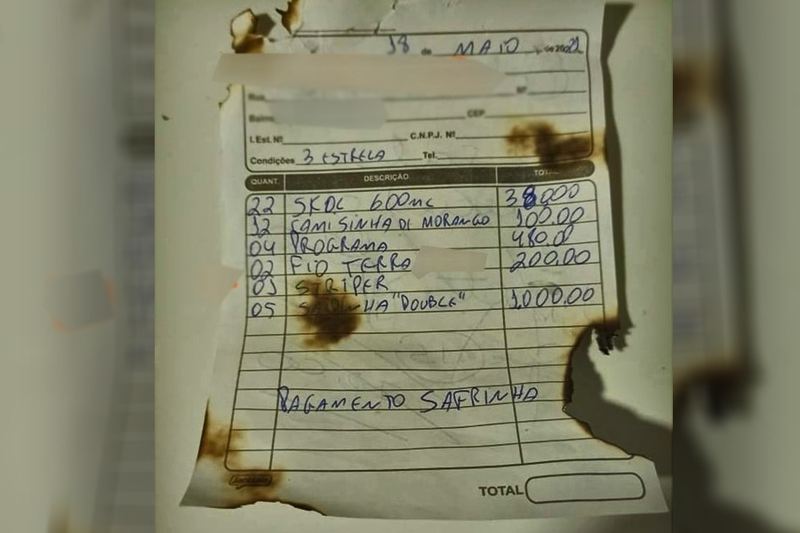 18 de MAIO de 2022
Nº
Bairro CEP
I. Est. Nº C.N.P.J. Nº
Condições 3 ESTRELA Tel.
QUANT. DESCRIÇÃO TOTAL
22 SKOL 600ML 38000
12 CAMISINHA DI MORANGO 100.00
04 PROGRAMA 480.0
02 FIO TERRA 200.00
01 STRIPER
05 "DOUBLE" 1000.00
PAGAMENTO SAFRINHA
TOTAL